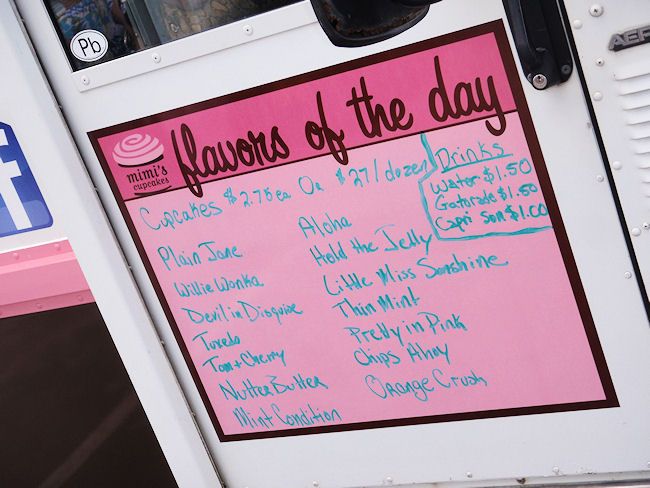 Pb
AER
f
flavors of the day
mimi's
cupcakes
Cupcakes $2.75 ea Or $27/dozen
Drinks
Water $1.50
Gatorade $1.50
Capri Sun $1.00
Plain Jane
Willie Wonka
Devil in Disguise
Tuxedo
Tom + Cherry
Nutter Butter
Mint Condition
Aloha
Hold the Jelly
Little Miss Sunshine
Thin Mint
Pretty in Pink
Chips Ahoy
Orange Crush